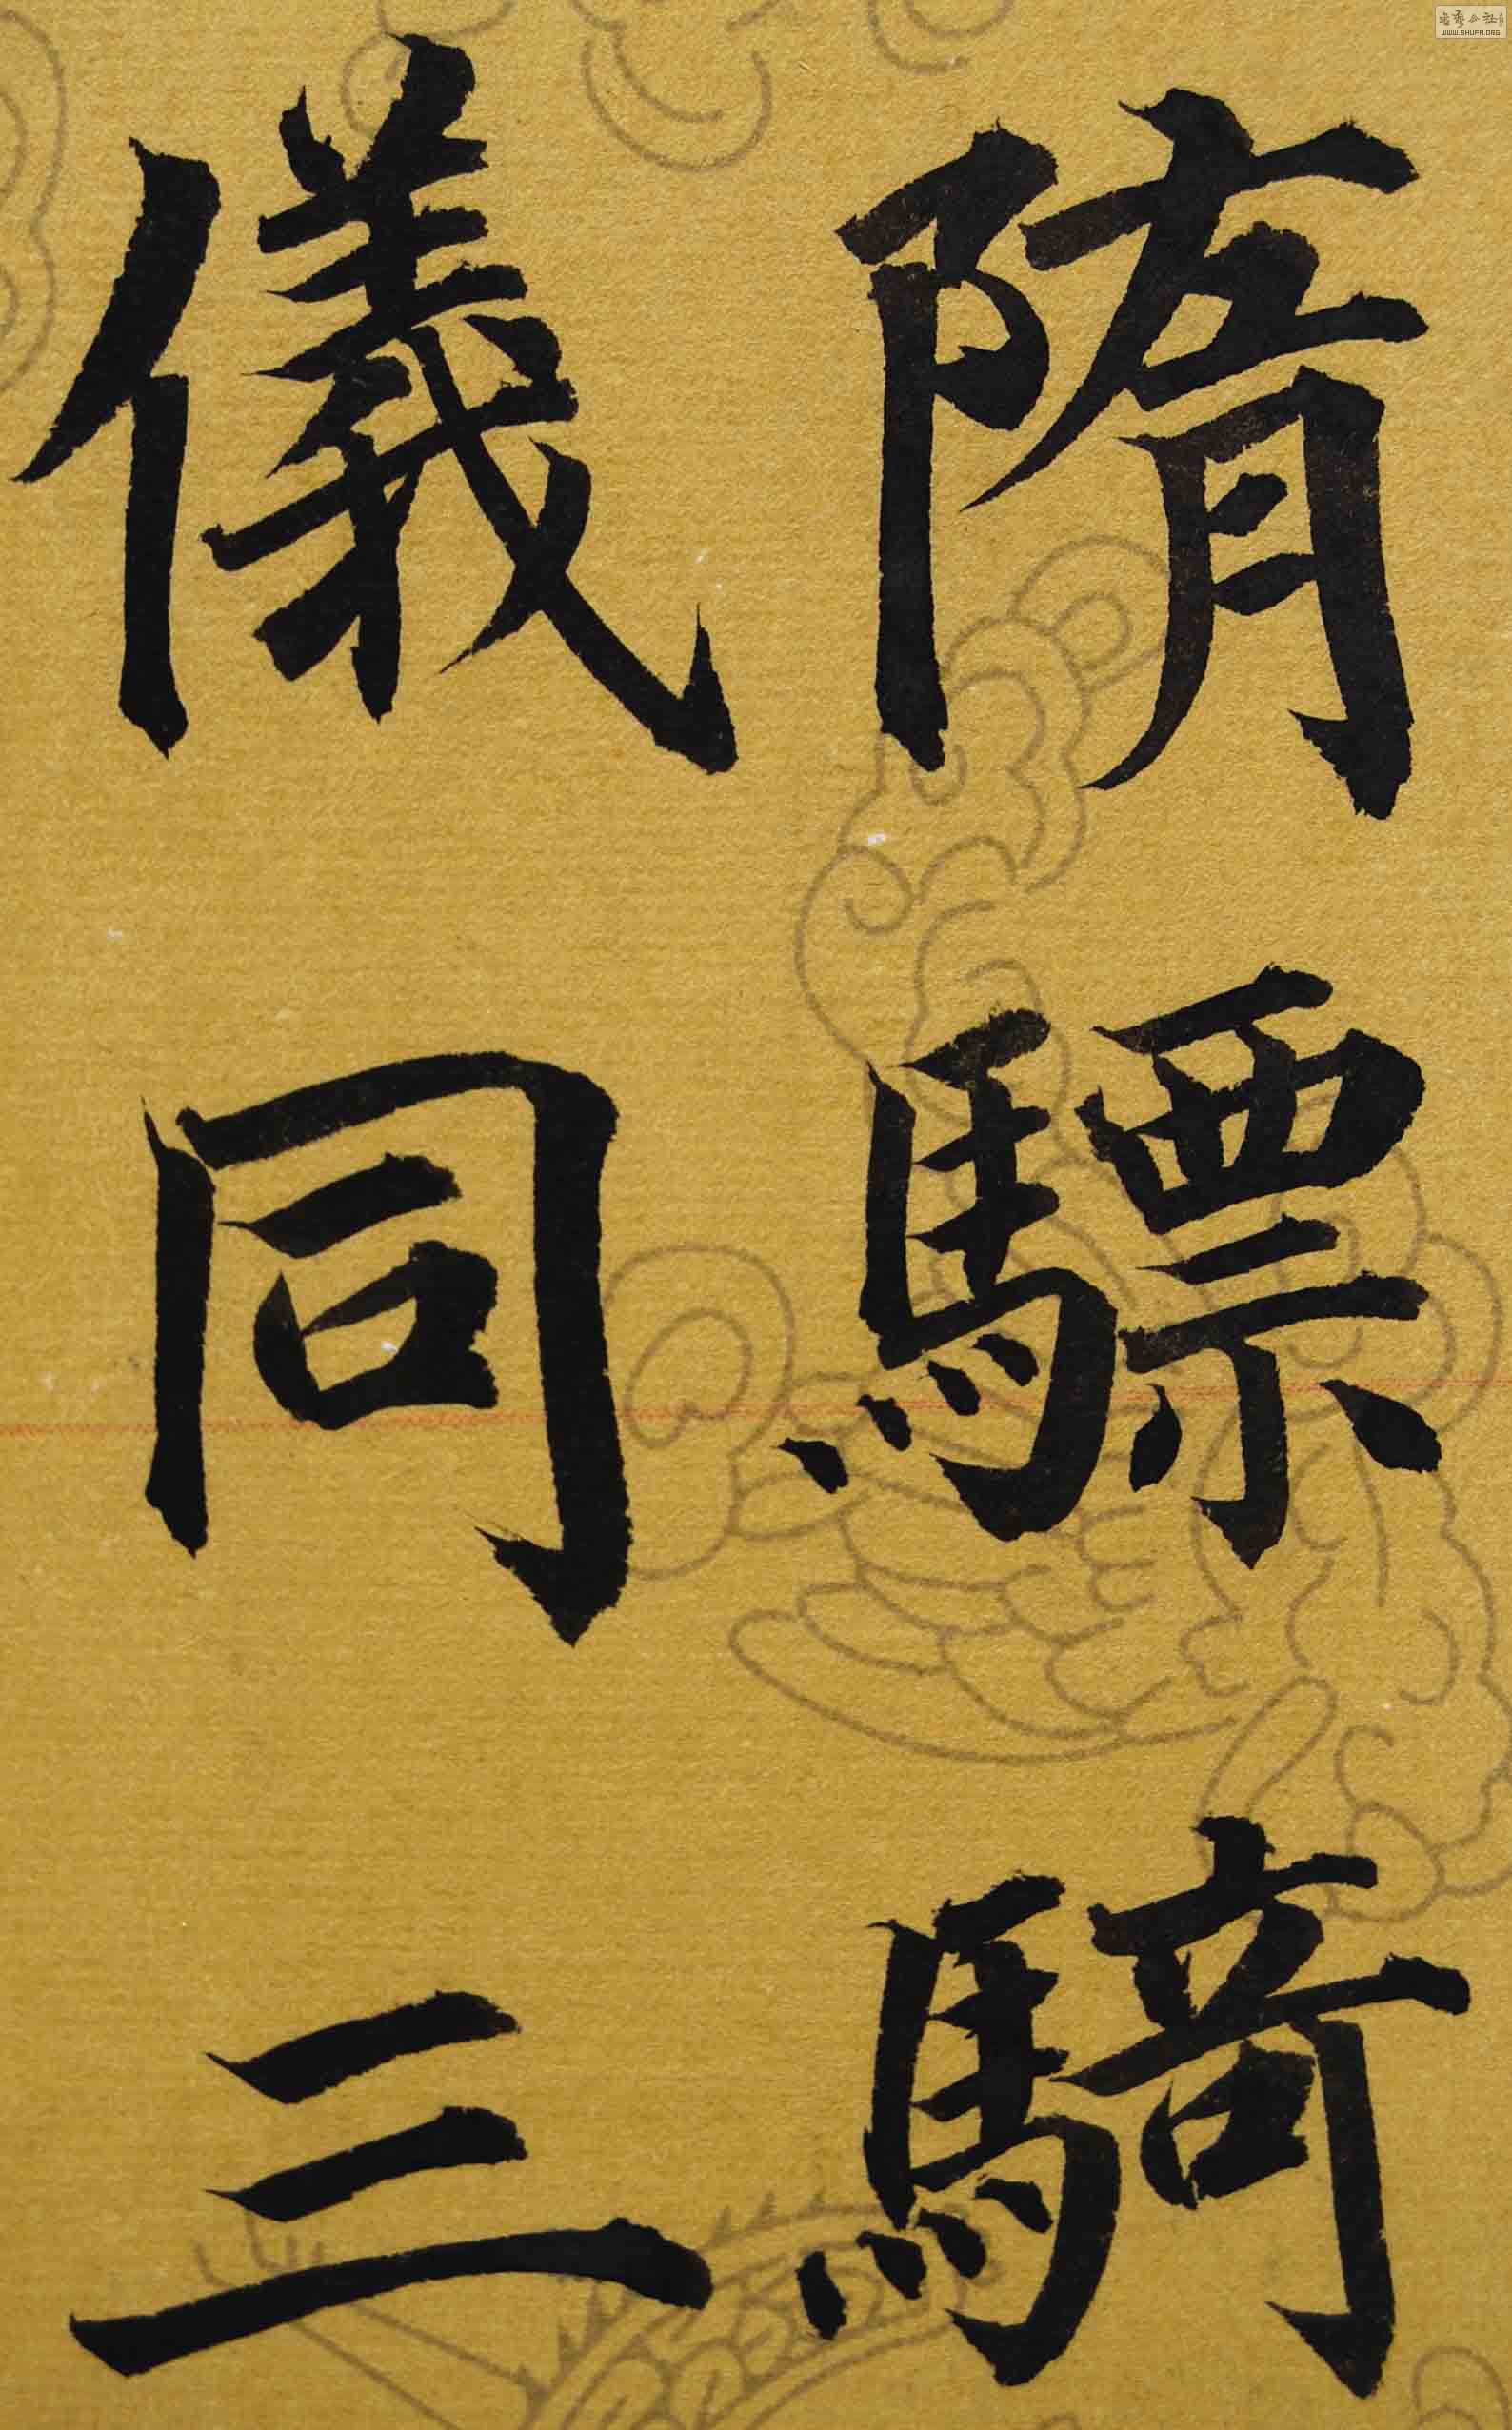 隋驃騎
儀同三
WWW.SHUFA.ORG